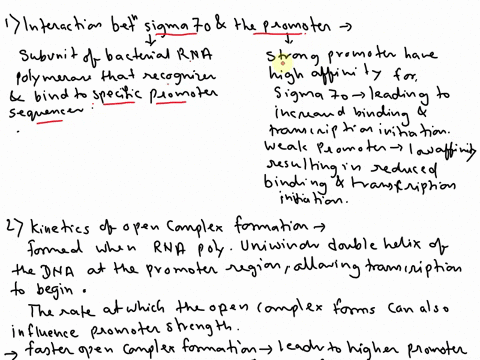 1) Interaction betn sigma 70 & the promoter →
Subunit of bacterial RNA
polymerase that recognizes
& bind to specific promoter
sequences.
strong promoter have
high affinity for
Sigma 70 → leading to
increased binding &
transcription initiation.
weak promoter → low affinity
resulting in reduced
binding & transcription
initiation.
2) Kinetics of open complex formation →
formed when RNA poly. Unwindr double helix of
the DNA at the promoter region, allowing transcription
to begin.
The rate at which the open complex forms can also
influence promoter strength.
→ faster open complex formation → leads to higher promoter